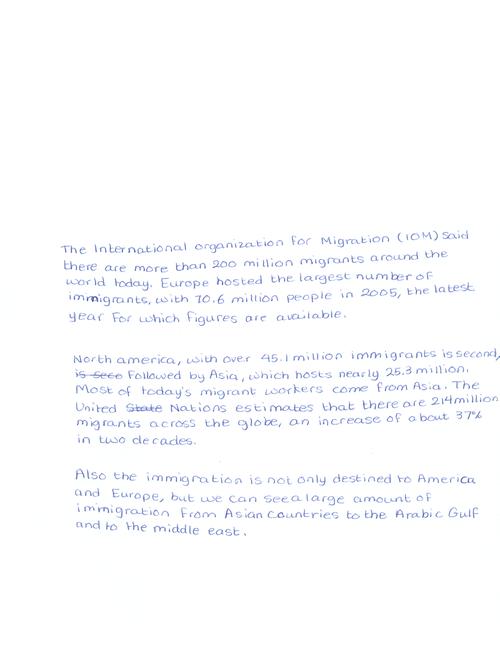 The International organization for Migration (IOM) said
there are more than 200 million migrants around the
world today. Europe hosted the largest number of
immigrants, with 70.6 million people in 2005, the latest
year for which figures are available.
North america, with over 45.1 million immigrants is second,
is seco followed by Asia, which hosts nearly 25.3 million.
Most of today's migrant workers come from Asia. The
United State Nations estimates that there are 214 million
migrants across the globe, an increase of about 37%
in two decades.
Also the immigration is not only destined to America
and Europe, but we can see a large amount of
immigration from Asian Countries to the Arabic Gulf
and to the middle east.